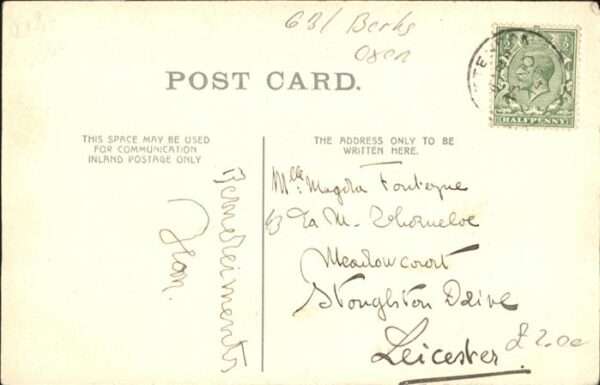 631 Berks
Oxon
POST CARD.
HALFPENNY
THIS SPACE MAY BE USED
FOR COMMUNICATION
INLAND POSTAGE ONLY
THE ADDRESS ONLY TO BE
WRITTEN HERE.
Remerciements
Jean.
Mlle Magda Fonteyne
Meadowcourt
Stoughton Drive
Leicester
£2.00